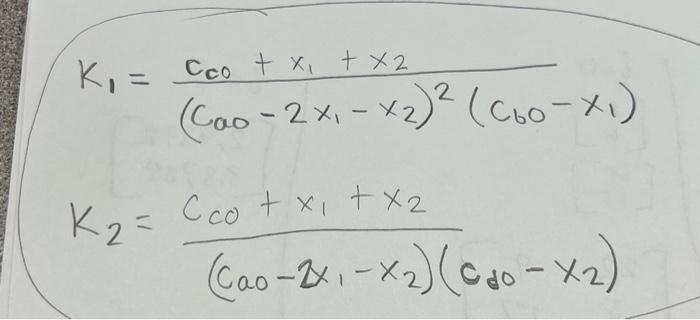 K₁ = (c_c0 + x₁ + x₂) / ((c_a0 - 2x₁ - x₂)² (c_b0 - x₁))
K₂ = (c_c0 + x₁ + x₂) / ((c_a0 - 2x₁ - x₂)(c_d0 - x₂))